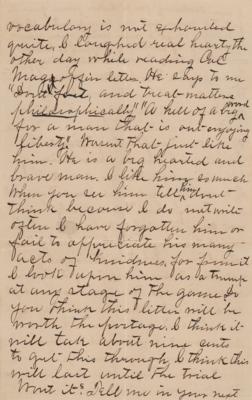 vocabulary is not exhausted
quite, I laughed real hearty the
other day while reading Col
Magoffin letter. He says to me
"Don't fret, and treat matters
philosophically" "A hell of a big word
for a man that is out enjoying
liberty." Warent that just like
him. He is a big hearted and
brave man. I like him so much
When you see him tell him dont
think because I do not write
often I have forgotten him or
fail to appreciate his many
acts of kindness, for
I look upon him as a trump
at any stage of the game. Do
you think this letter will be
worth the postage. I think it
will take about nine cents
to get this through. I think this
will last until the trial
Wont it? Tell me in your next